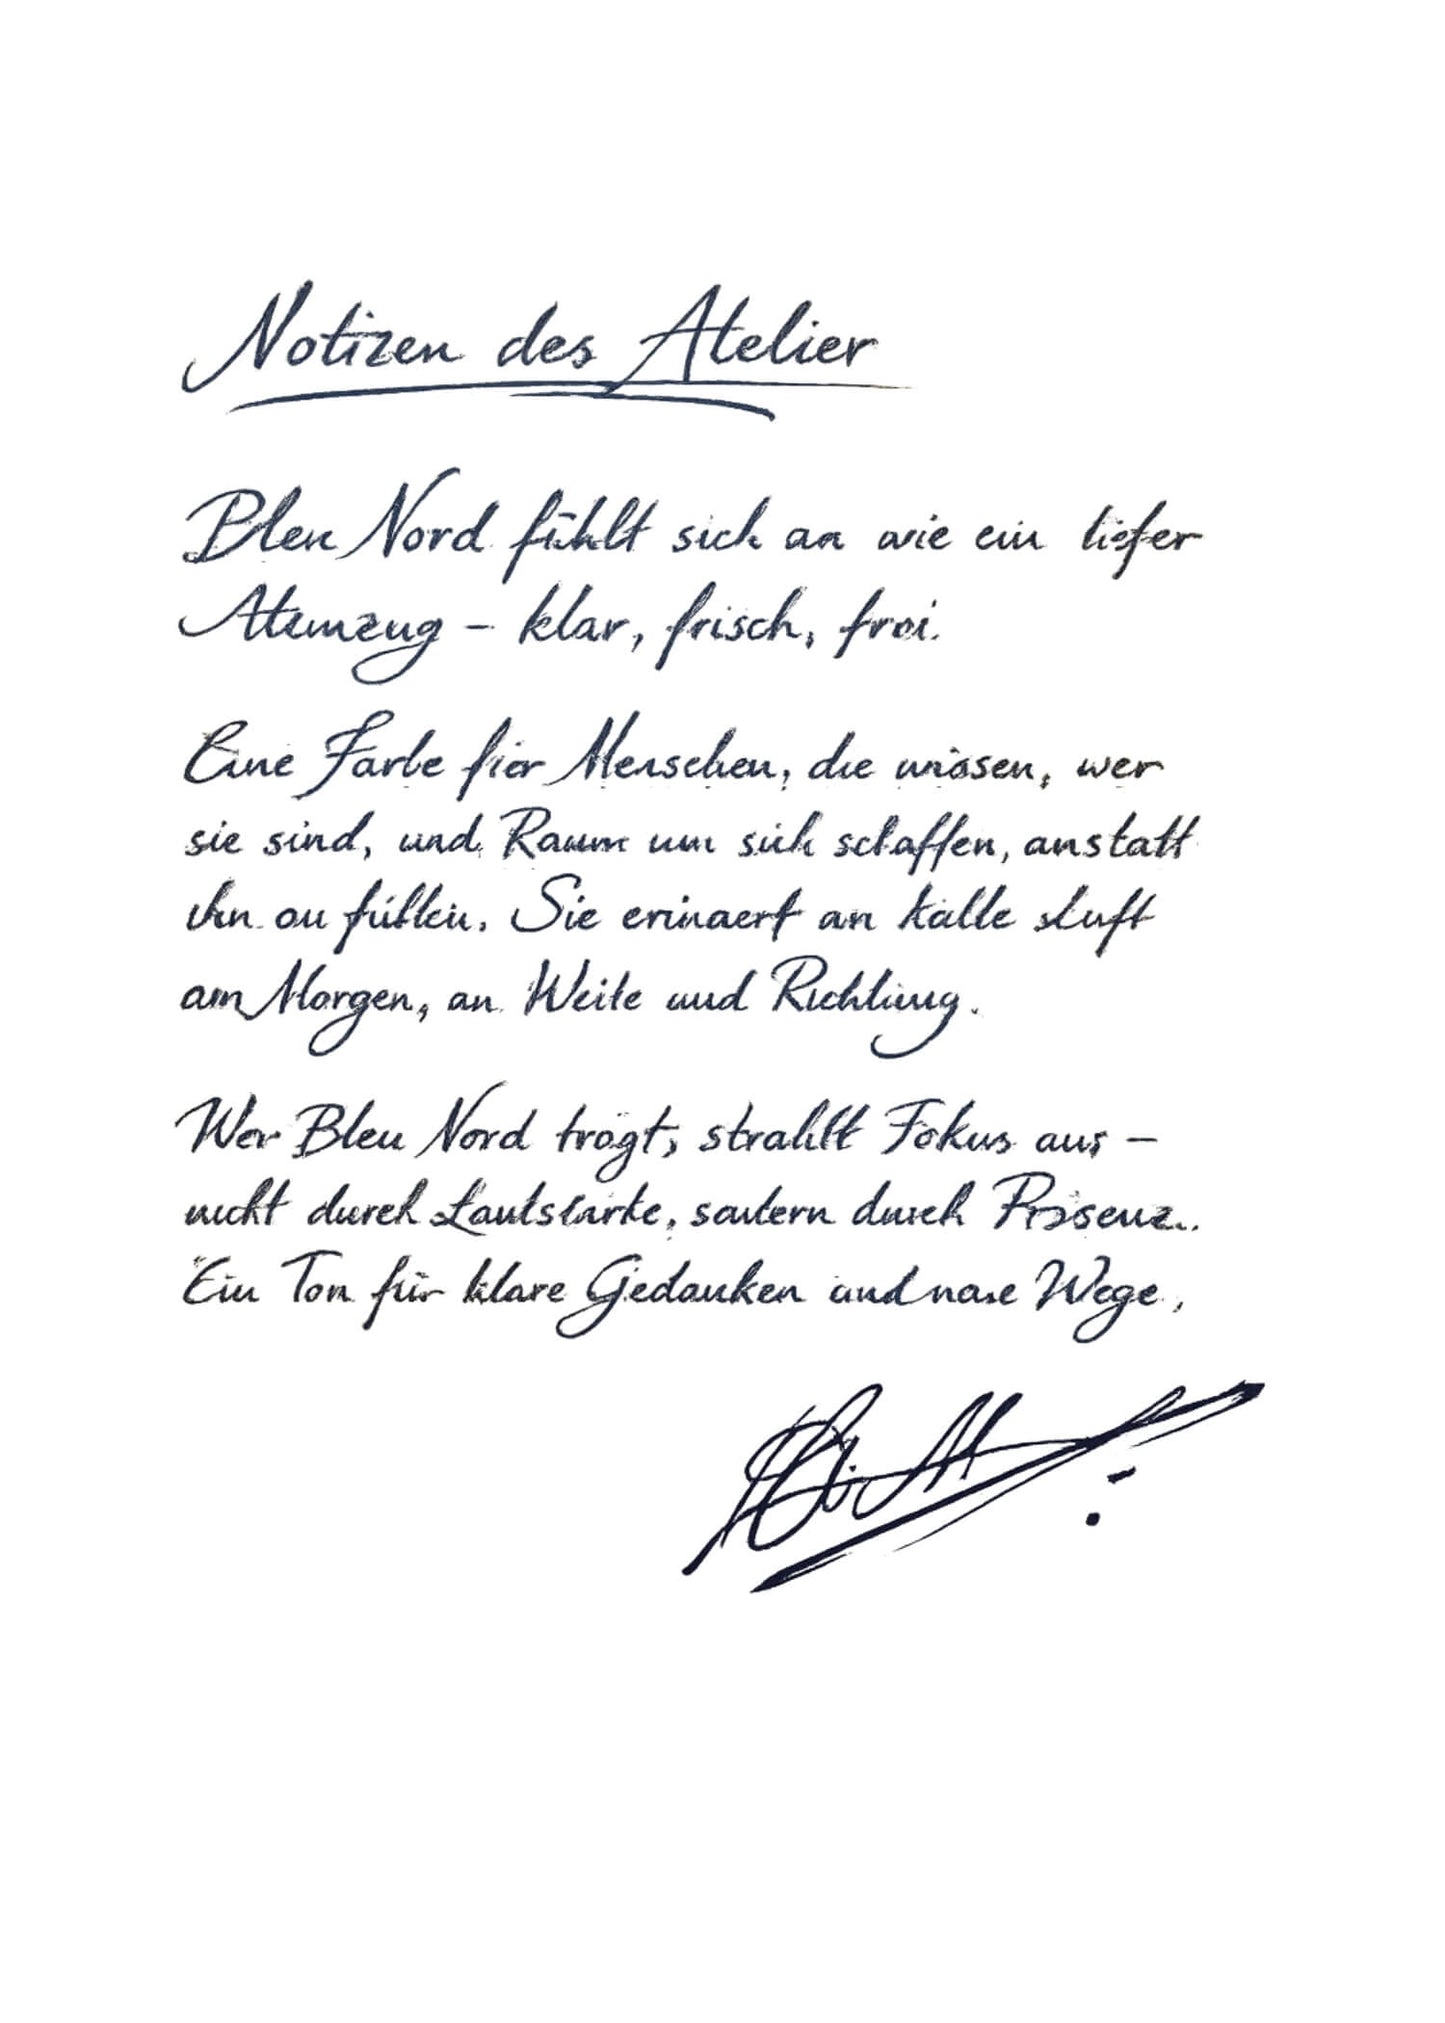 Notizen des Atelier
Bleu Nord fühlt sich an wie ein tiefer
Atemzug – klar, frisch, frei.
Eine Farbe für Menschen, die wissen, wer
sie sind, und Raum um sich schaffen, anstatt
ihn zu füllen. Sie erinnert an kalte Luft
am Morgen, an Weite und Richtung.
Wer Bleu Nord trägt, strahlt Fokus aus –
nicht durch Lautstärke, sondern durch Präsenz.
Ein Ton für klare Gedanken und neue Wege.